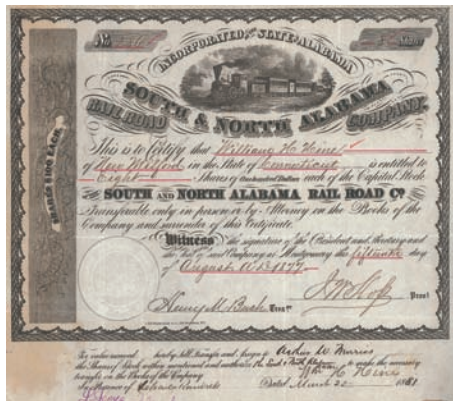 No.
Shares
INCORPORATED BY THE STATE OF ALABAMA
SOUTH & NORTH ALABAMA
RAIL ROAD COMPANY.
This is to Certify that William H. Hine
of New Milford in the State of Connecticut is entitled to
Eight Shares of One hundred Dollars each of the Capital Stock
SOUTH AND NORTH ALABAMA RAIL ROAD Co
Transferable only in person or by Attorney on the Books of the
Company and surrender of this Certificate.
Witness the signature of the President and Secretary and
the Seal of said Company at Montgomery this fifteenth day
of August A.D. 1877.
SHARES $100 EACH.
Henry M. Buch Treasr
Prest
For value received hereby sell, transfer and assign to Arthur W. Merriss
the Shares of Stock within mentioned and authorize to make the necessary
transfer on the Books of the Company
Wm H. Hine
Dated March 22 1881